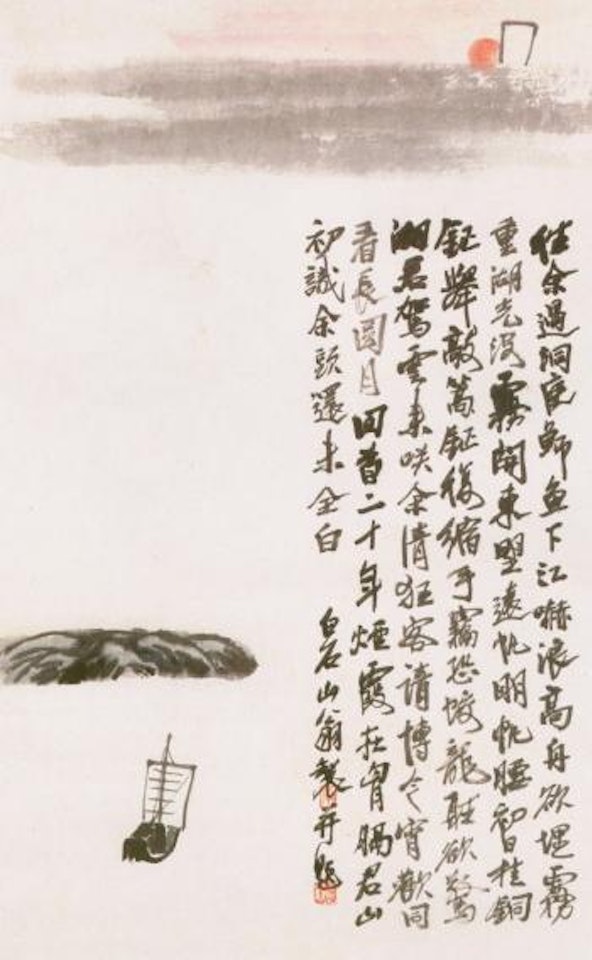 往余過洞庭鯽魚下江嚇浪高舟欲埋霧
重湖光沒霧開東望遠帆明帆腰初日挂銅
鉦舉敲篙鉦復縮手竊恐蛟龍聽欲驚
湘君駕雲來咲余清狂客請博今宵歡同
看長圓月回首二十年煙霞在胷膈君山
初識余頭還未全白 白石山翁製并題